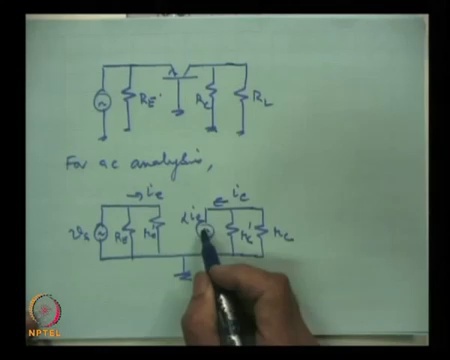 RE' RC RL
For ac analysis,
→ ie ← ic
vs RE re' αie rc' rc
NPTEL